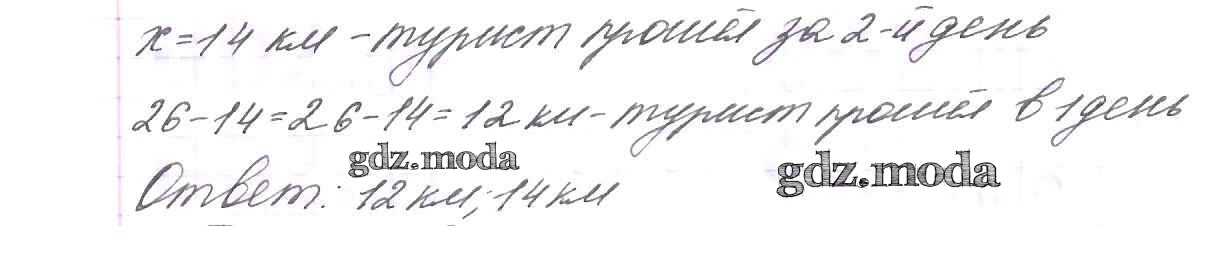 x=14 км - турист прошёл за 2-й день
26-14=26-14=12 км - турист прошёл в 1 день
gdz.moda gdz.moda
Ответ: 12 км; 14 км